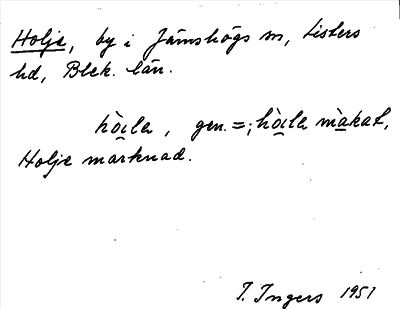 Holje, by i Jämshögs sn, Listers
hd, Blek. län.
hòila, gen. =; hòila màkat,
Holje marknad.
I. Ingers 1951